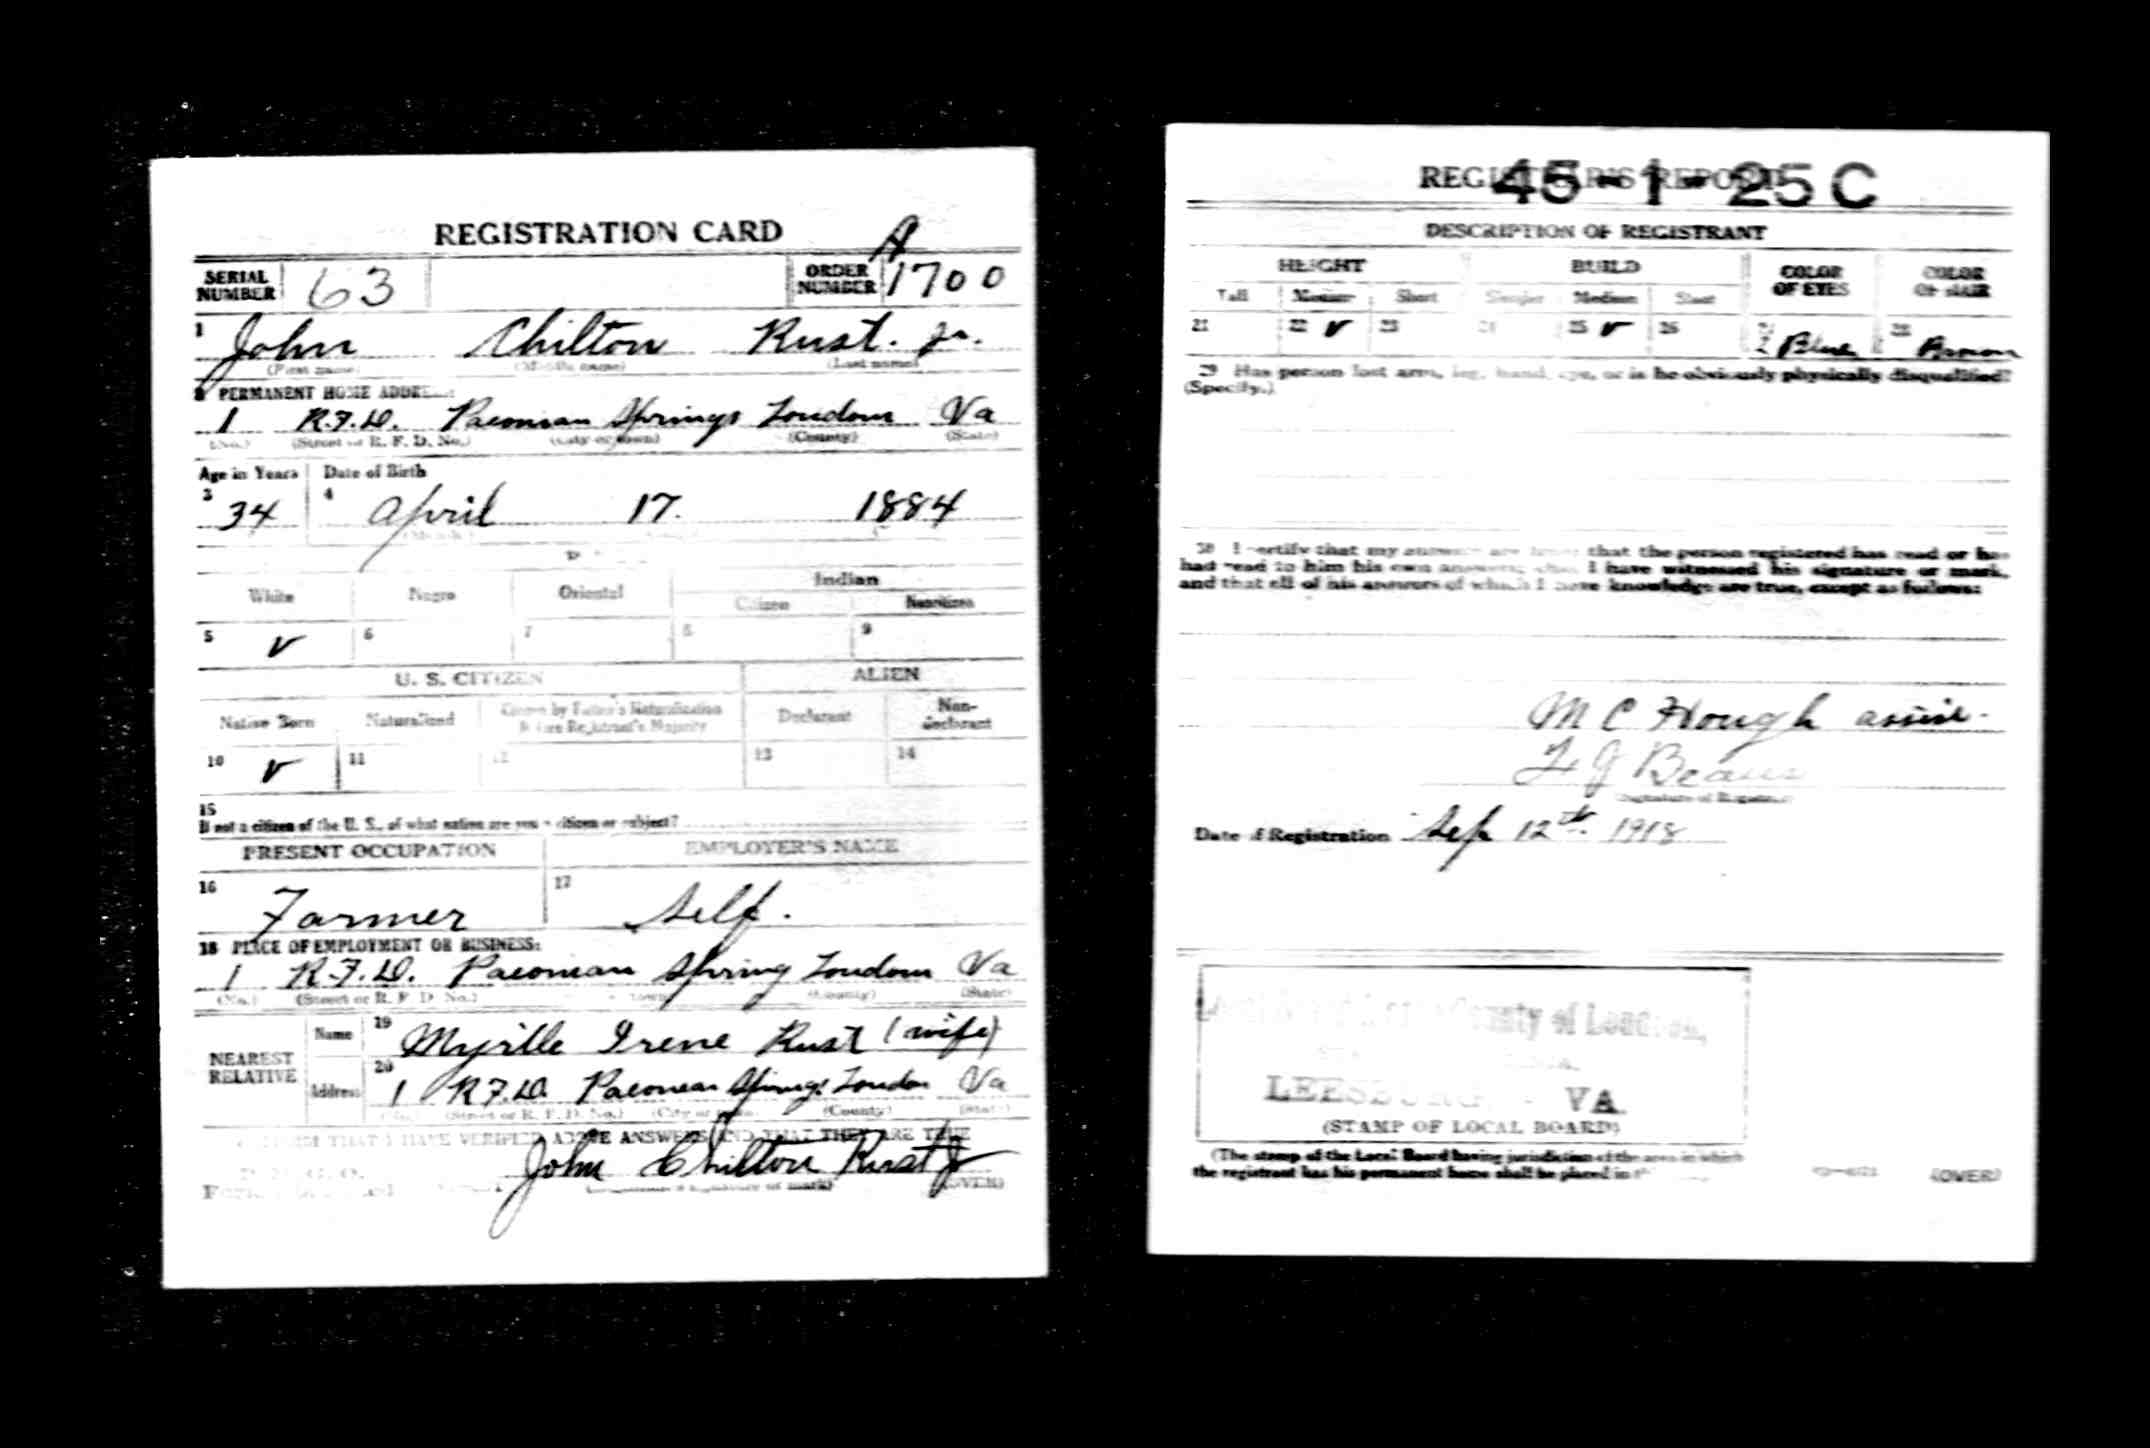 REGISTRATION CARD
SERIAL NUMBER 63 ORDER NUMBER A 1700
1 John Chilton Rust. Jr.
(First name) (Middle name) (Last name)
2 PERMANENT HOME ADDRESS:
1 R.F.D. Paeonian Springs Loudoun Va
(No.) (Street or R. F. D. No.) (City or town) (County) (State)
Age in Years Date of Birth
3 34 4 April 17. 1884
White Negro Oriental Indian
Citizen Noncitizen
5 ✓ 6 7 8 9
U. S. CITIZEN ALIEN
Native Born Naturalized Citizen by Father's Naturalization Before Registrant's Majority Declarant Non-declarant
10 ✓ 11 12 13 14
15
If not a citizen of the U. S., of what nation are you a citizen or subject?
PRESENT OCCUPATION EMPLOYER'S NAME
16 Farmer 17 Self.
18 PLACE OF EMPLOYMENT OR BUSINESS:
1 R.F.D. Paeonian Spring Loudoun Va
(No.) (Street or R. F. D. No.) town) (County) (State)
NEAREST RELATIVE
Name 19 Myrille Irene Rust (wife)
Address 20 1 R.F.D. Paeonean Springs Loudon Va
(Street or R. F. D. No.) (City or (County) (State)
THAT I HAVE VERIFIED ABOVE ANSWERS AND THAT THEY ARE TRUE
John Chilton Rust Jr
signature or mark) (OVER)
REGISTRAR'S REPORT
45-1-25 C
DESCRIPTION OF REGISTRANT
HEIGHT BUILD COLOR OF EYES COLOR OF HAIR
Tall Medium Short Slender Medium Stout
21 22 ✓ 23 24 25 ✓ 26 27 Blue 28 Brown
29 Has person lost arm, leg, hand, eye, or is he obviously physically disqualified?
(Specify.)
30 I certify that my answers are true; that the person registered has read or has
had read to him his own answers; that I have witnessed his signature or mark,
and that all of his answers of which I have knowledge are true, except as follows:
M C Hough assist.
Beans
(Signature of Registrar)
Date of Registration Sep 12th. 1918
County of Loudoun,
LEESBURG, - VA.
(STAMP OF LOCAL BOARD)
(The stamp of the Local Board having jurisdiction of the area in which
the registrant has his permanent home shall be placed in
(OVER)